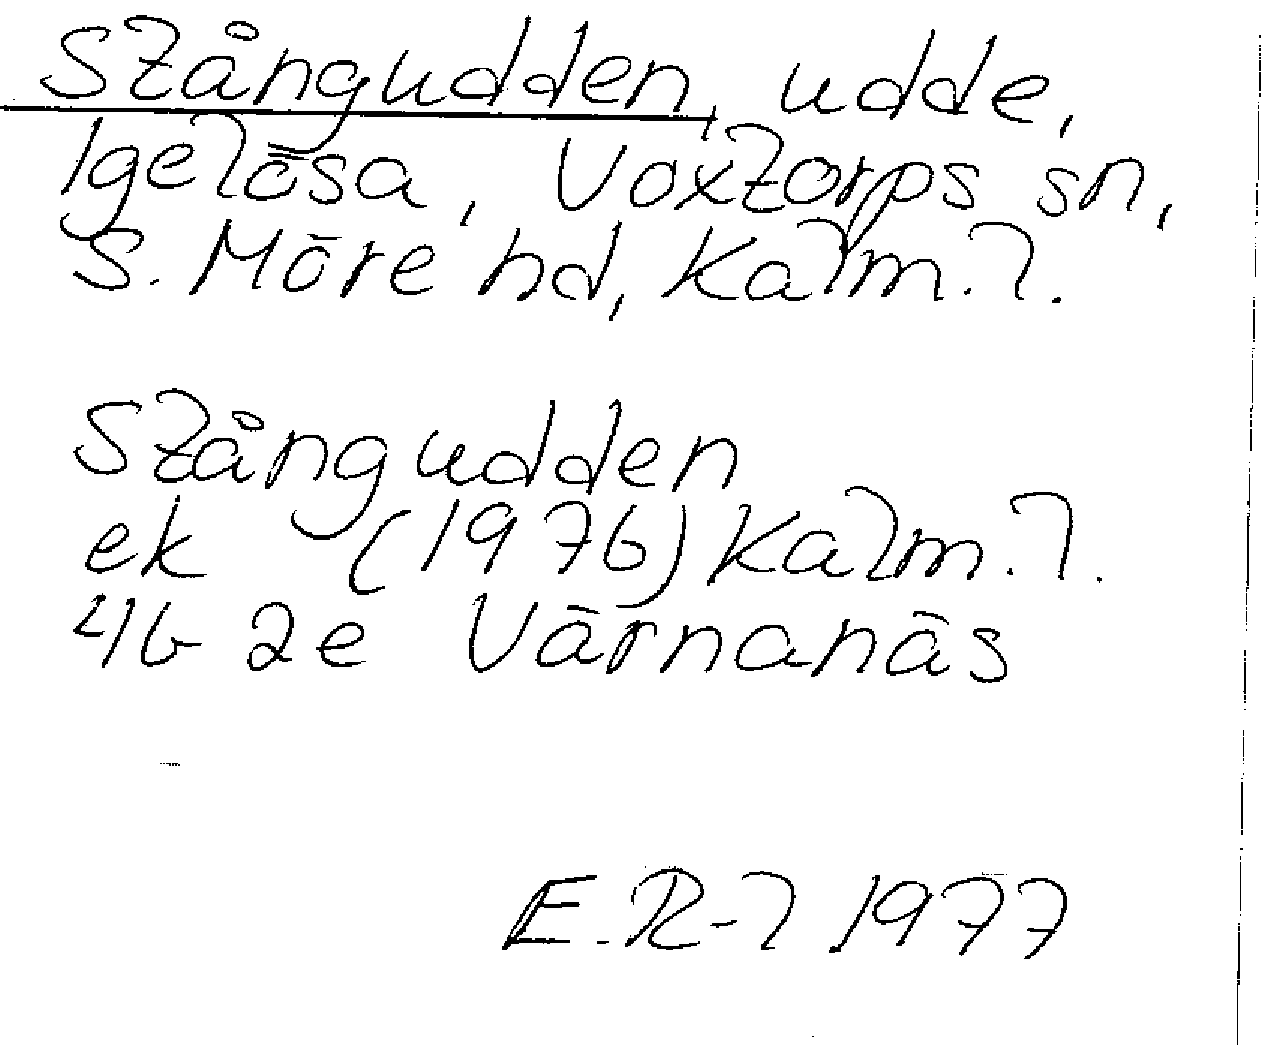 Stångudden, udde,
Igelösa, Voxtorps sn,
S. Möre hd, Kalm. l.
Stångudden
ek (1976) Kalm. l.
4G 2e Värnanäs
E. R-l 1977